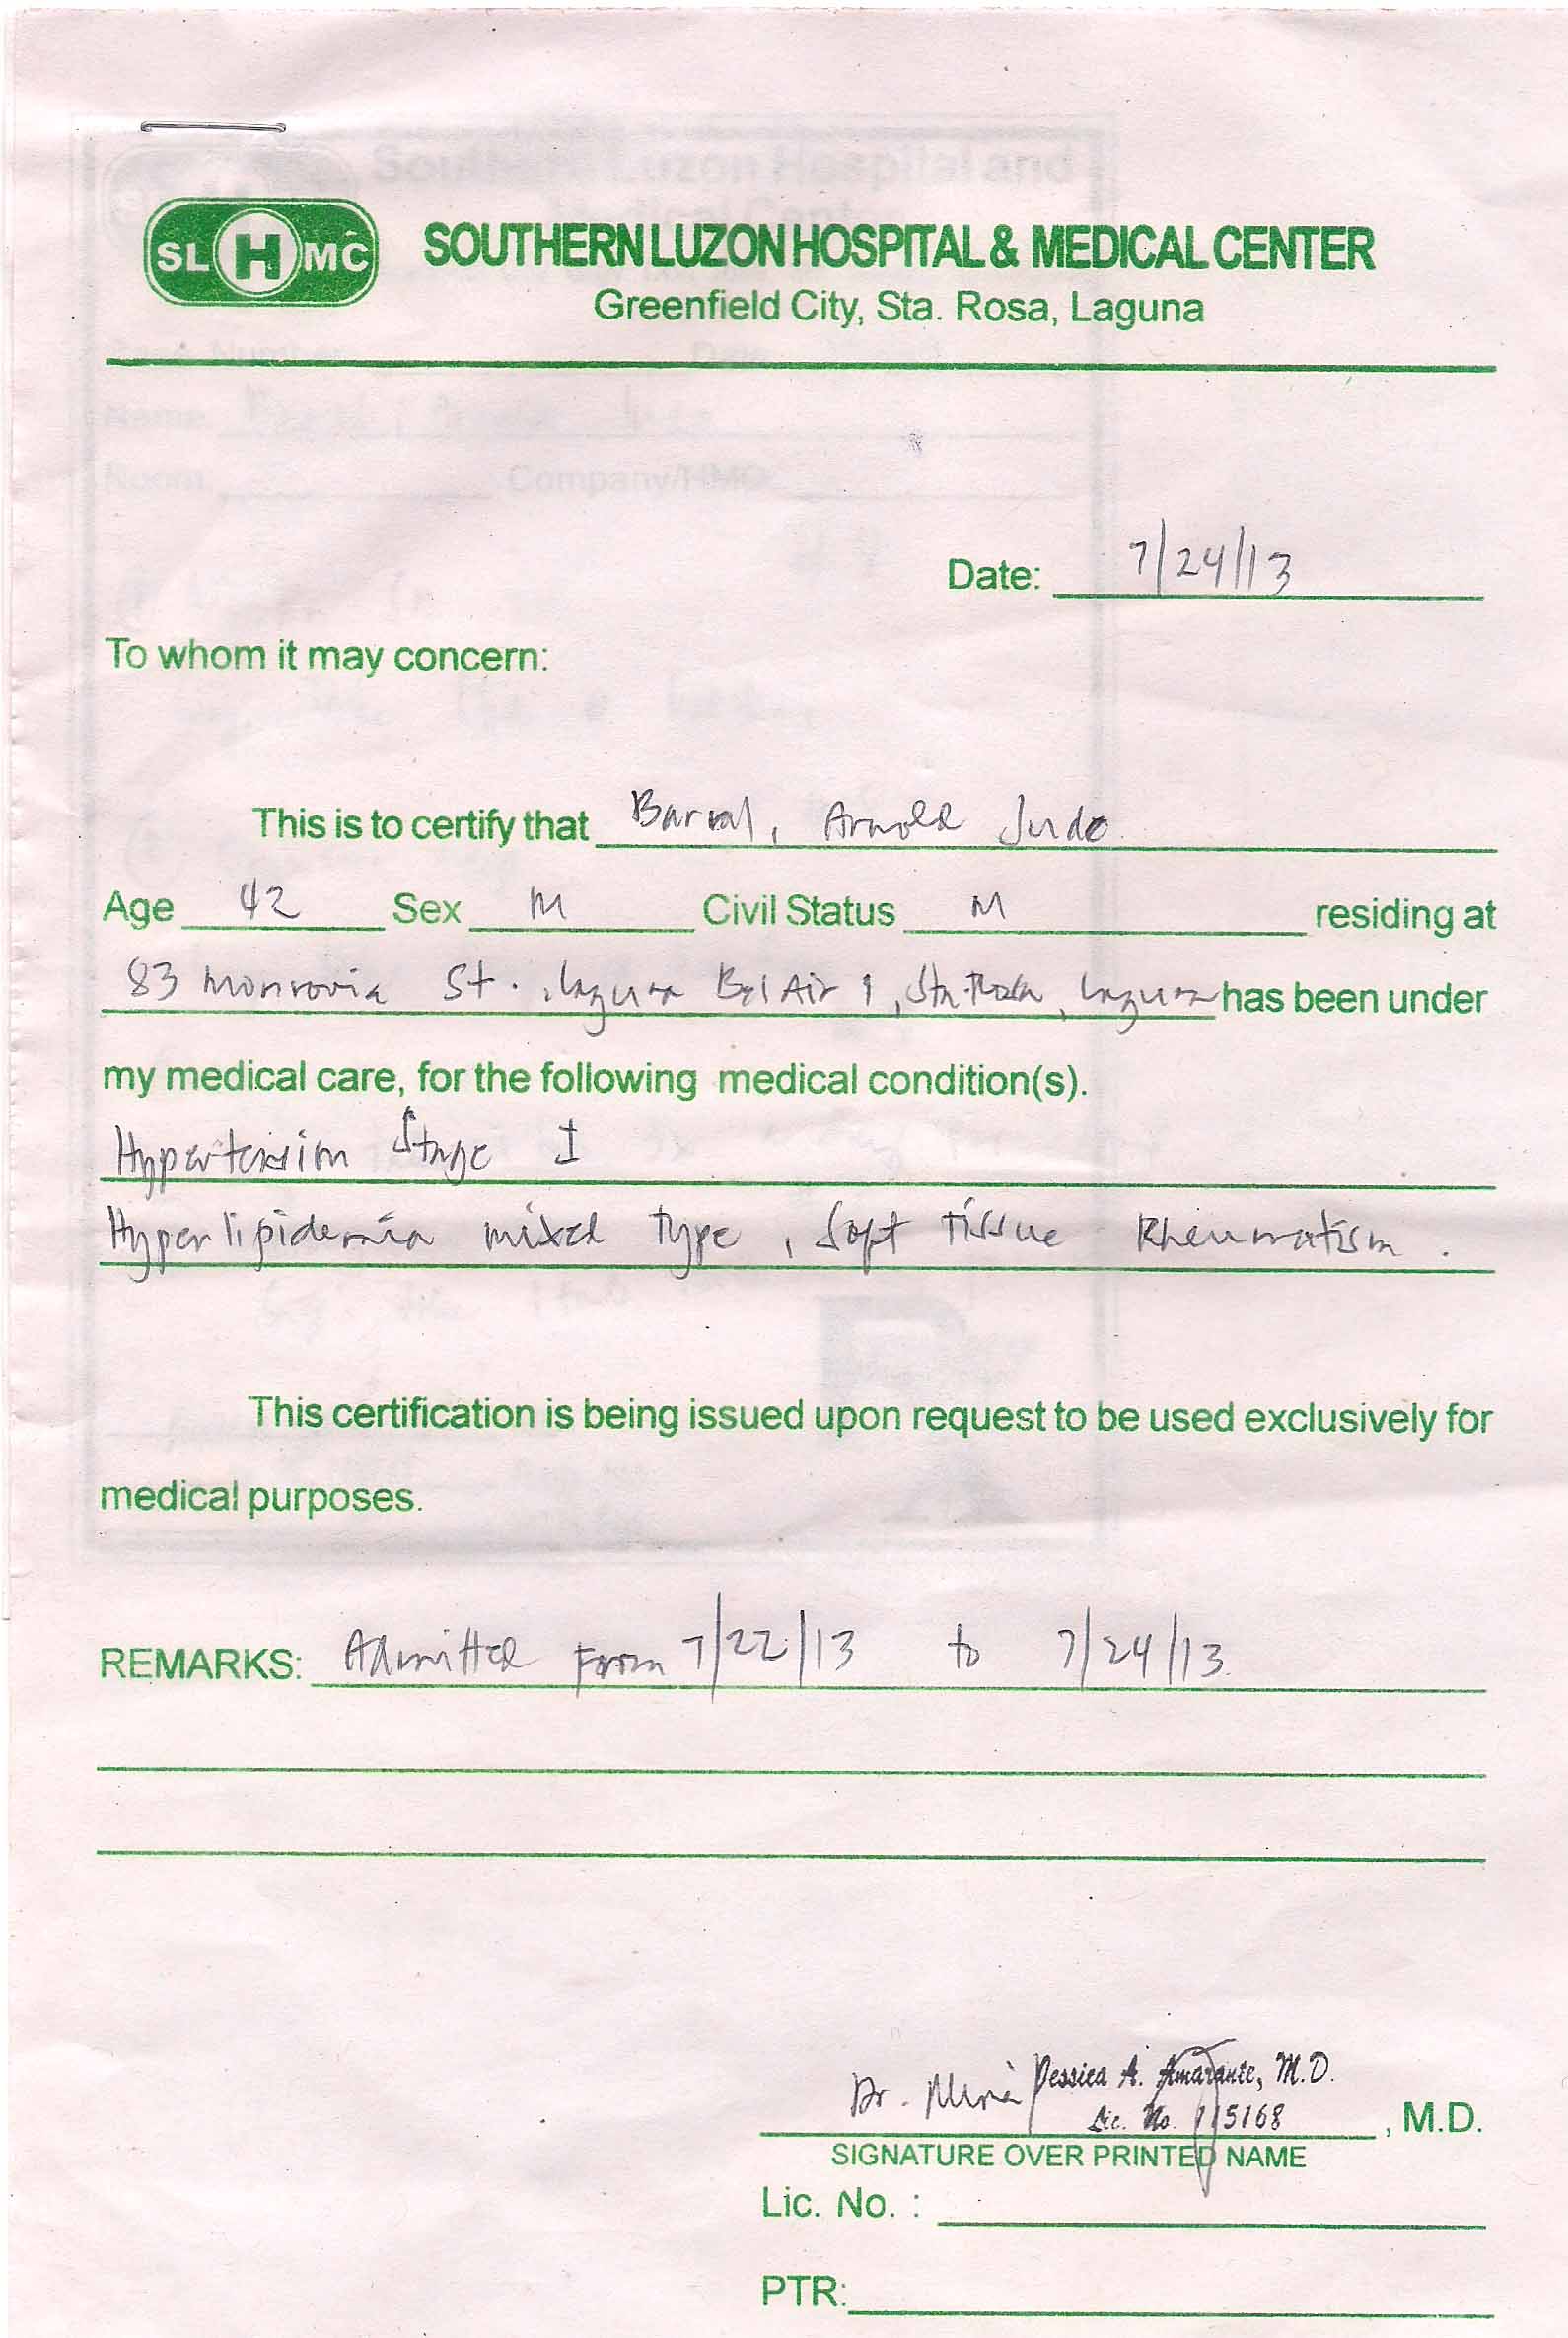 SL H MC
SOUTHERN LUZON HOSPITAL & MEDICAL CENTER
Greenfield City, Sta. Rosa, Laguna
Date: 7/24/13
To whom it may concern:
This is to certify that Barral, Arnold Jude
Age 42 Sex M Civil Status M residing at
83 Monrovia St., Laguna Bel Air 1, Sta. Rosa, Laguna has been under
my medical care, for the following medical condition(s).
Hypertension Stage I
Hyperlipidemia mixed type, Soft Tissue Rheumatism.
This certification is being issued upon request to be used exclusively for
medical purposes.
REMARKS: Admitted From 7/22/13 to 7/24/13
Dr. Jessica A. Amarante, M.D.
Lic. No. 115168 , M.D.
SIGNATURE OVER PRINTED NAME
Lic. No. :
PTR: